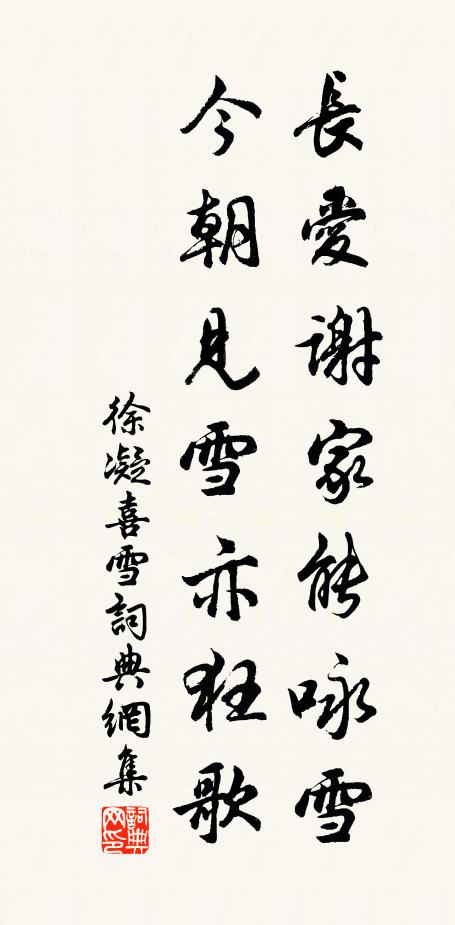 長愛謝家能咏雪
今朝見雪亦狂歌
徐凝喜雪詞典網集
詞典網印